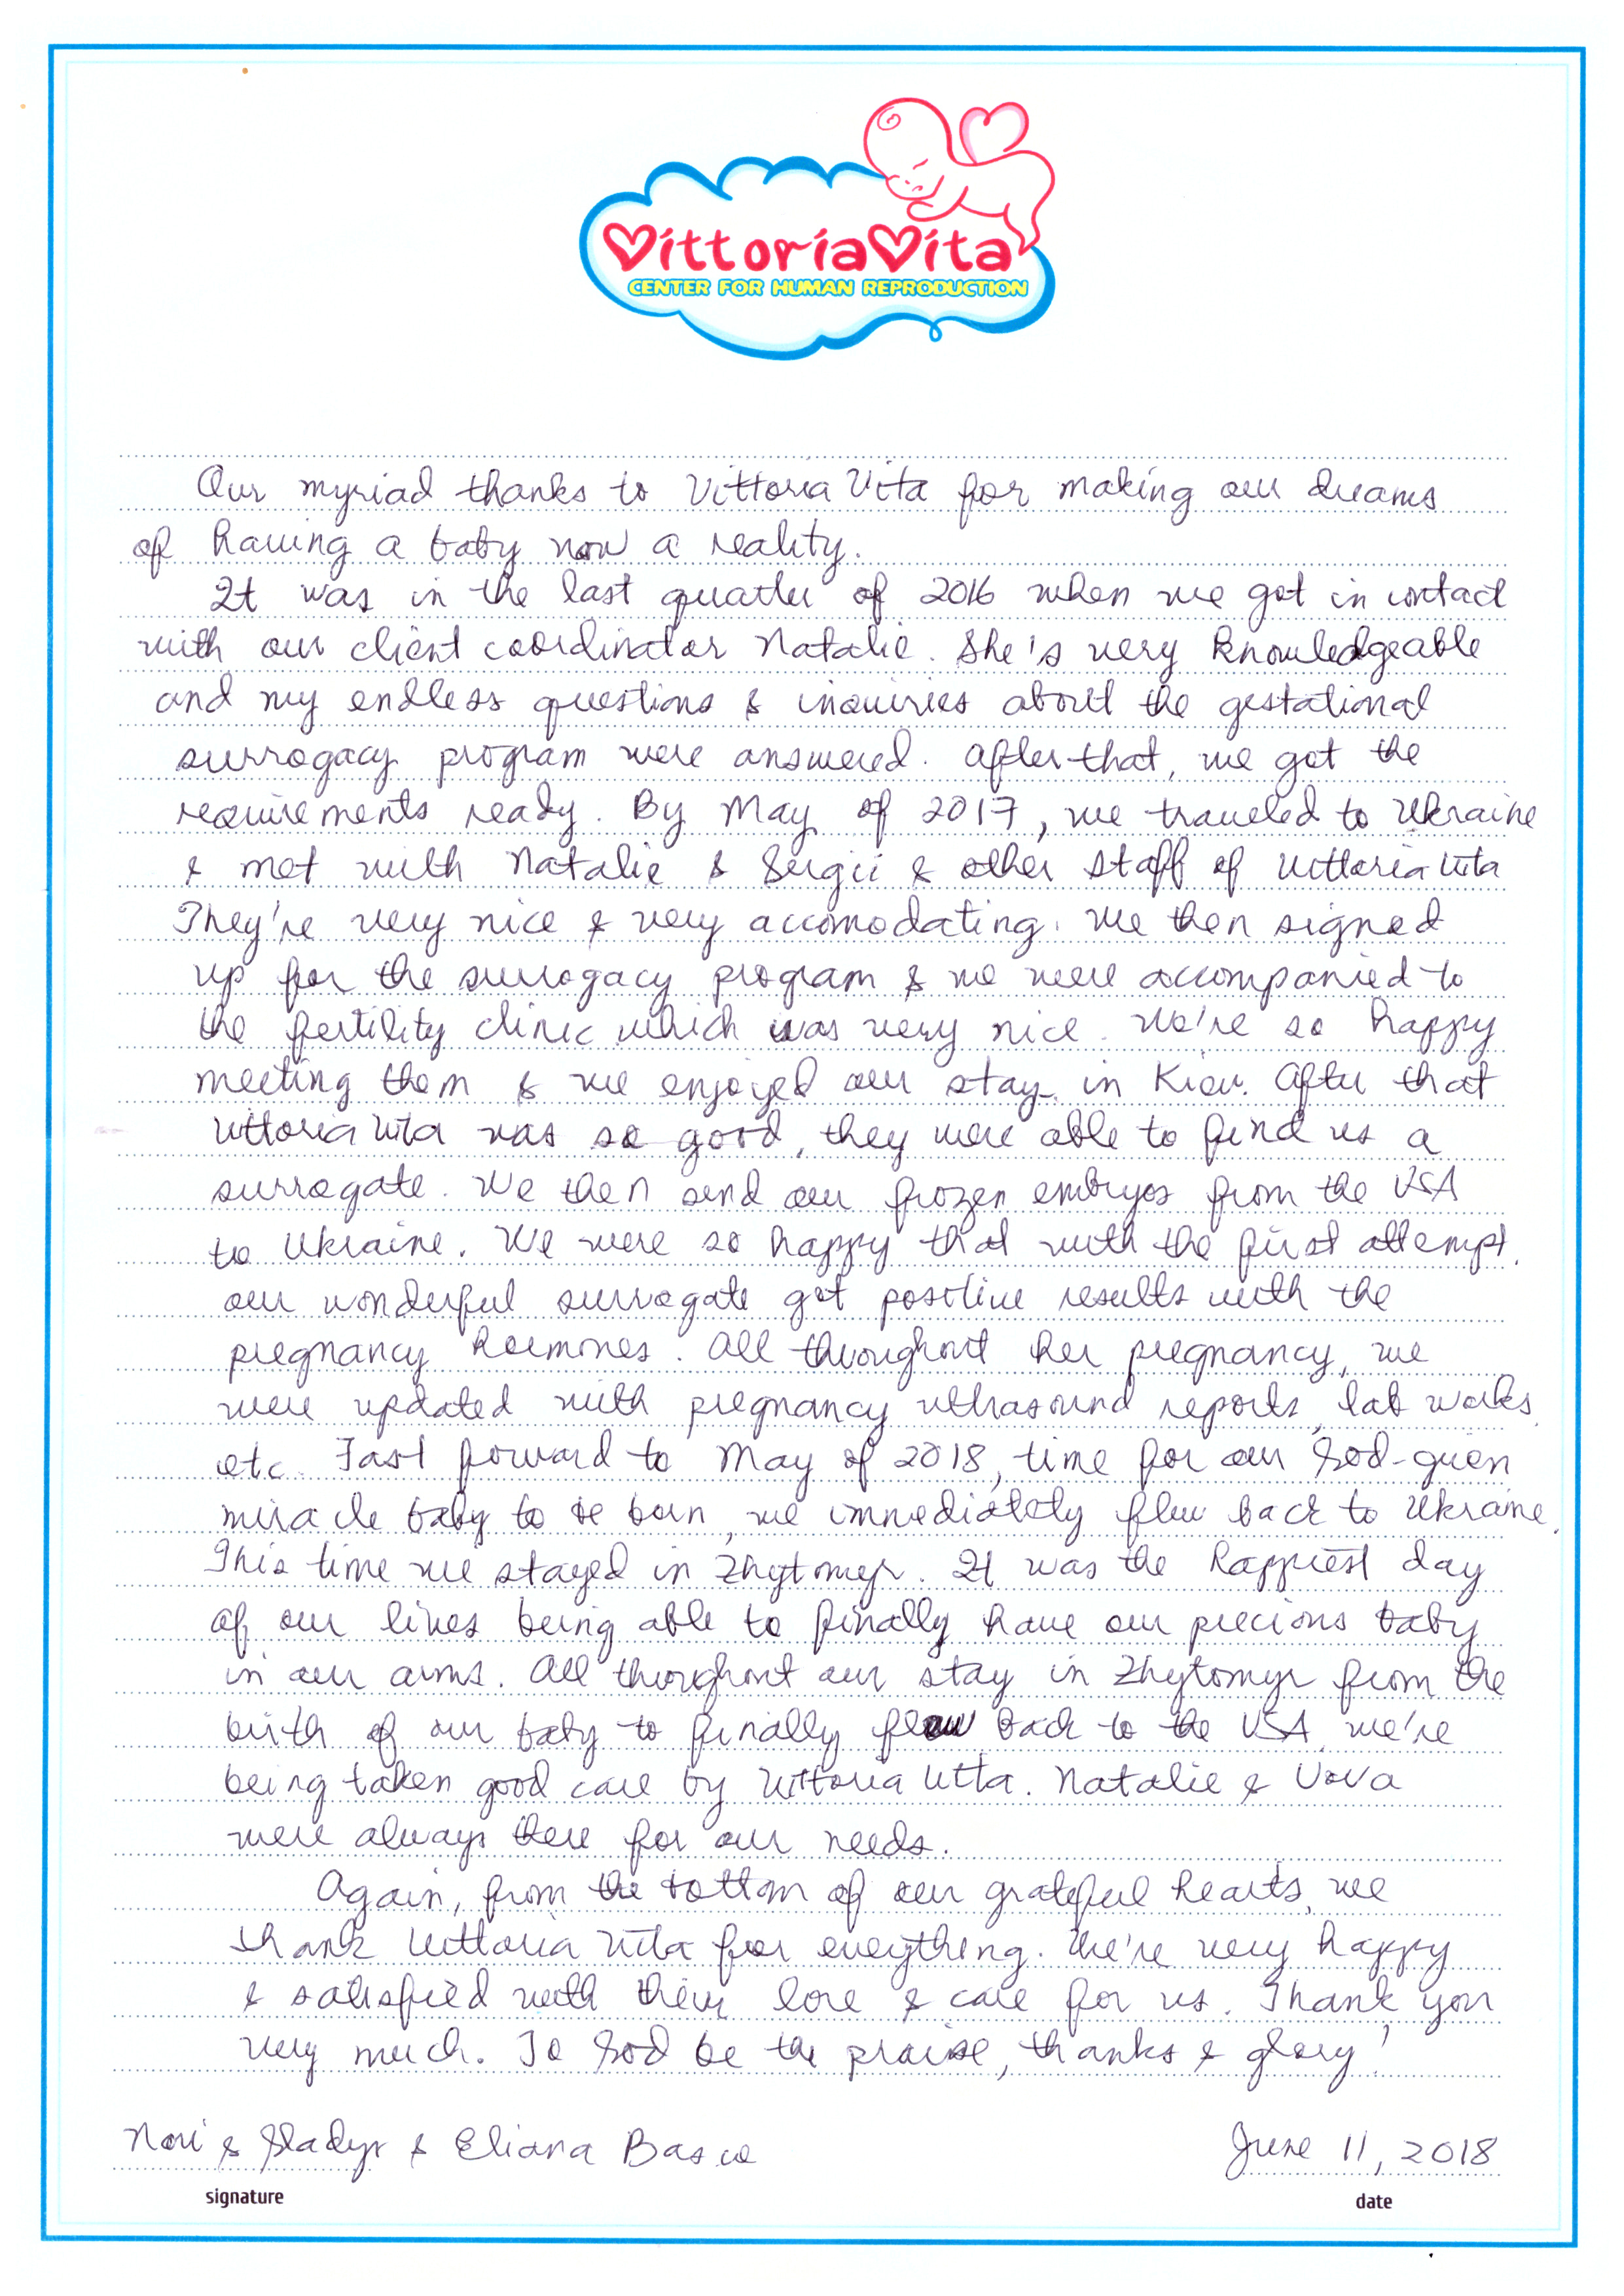 VittoriaVita
CENTER FOR HUMAN REPRODUCTION
Our myriad thanks to Vittoria Vita for making our dreams
of having a baby now a reality.
It was in the last quarter of 2016 when we got in contact
with our client coordinator Natalie. She's very knowledgeable
and my endless questions & inquiries about the gestational
surrogacy program were answered. After that, we got the
requirements ready. By May of 2017, we traveled to Ukraine
& met with Natalie & Sergii & other staff of Vittoria Vita
They're very nice & very accomodating. We then signed
up for the surrogacy program & we were accompanied to
the fertility clinic which was very nice. We're so happy
meeting them & we enjoyed our stay in Kiev. After that
Vittoria Vita was so good, they were able to find us a
surrogate. We then send our frozen embryos from the USA
to Ukraine. We were so happy that with the first attempt,
our wonderful surrogate got positive results with the
pregnancy hormones. All throughout her pregnancy, we
were updated with pregnancy ultrasound reports, lab works,
etc. Fast forward to May of 2018, time for our God-given
miracle baby to be born, we immediately flew back to Ukraine.
This time we stayed in Zhytomyr. It was the happiest day
of our lives being able to finally have our precious baby
in our arms. All throughout our stay in Zhytomyr from the
birth of our baby to finally flew back to the USA, we're
being taken good care by Vittoria Vita. Natalie & Vova
were always there for our needs.
Again, from the bottom of our grateful hearts, we
thank Vittoria Vita for everything. We're very happy
& satisfied with their love & care for us. Thank you
very much. To God be the praise, thanks & glory!
& Gladys & Eliana Basco June 11, 2018
signature date